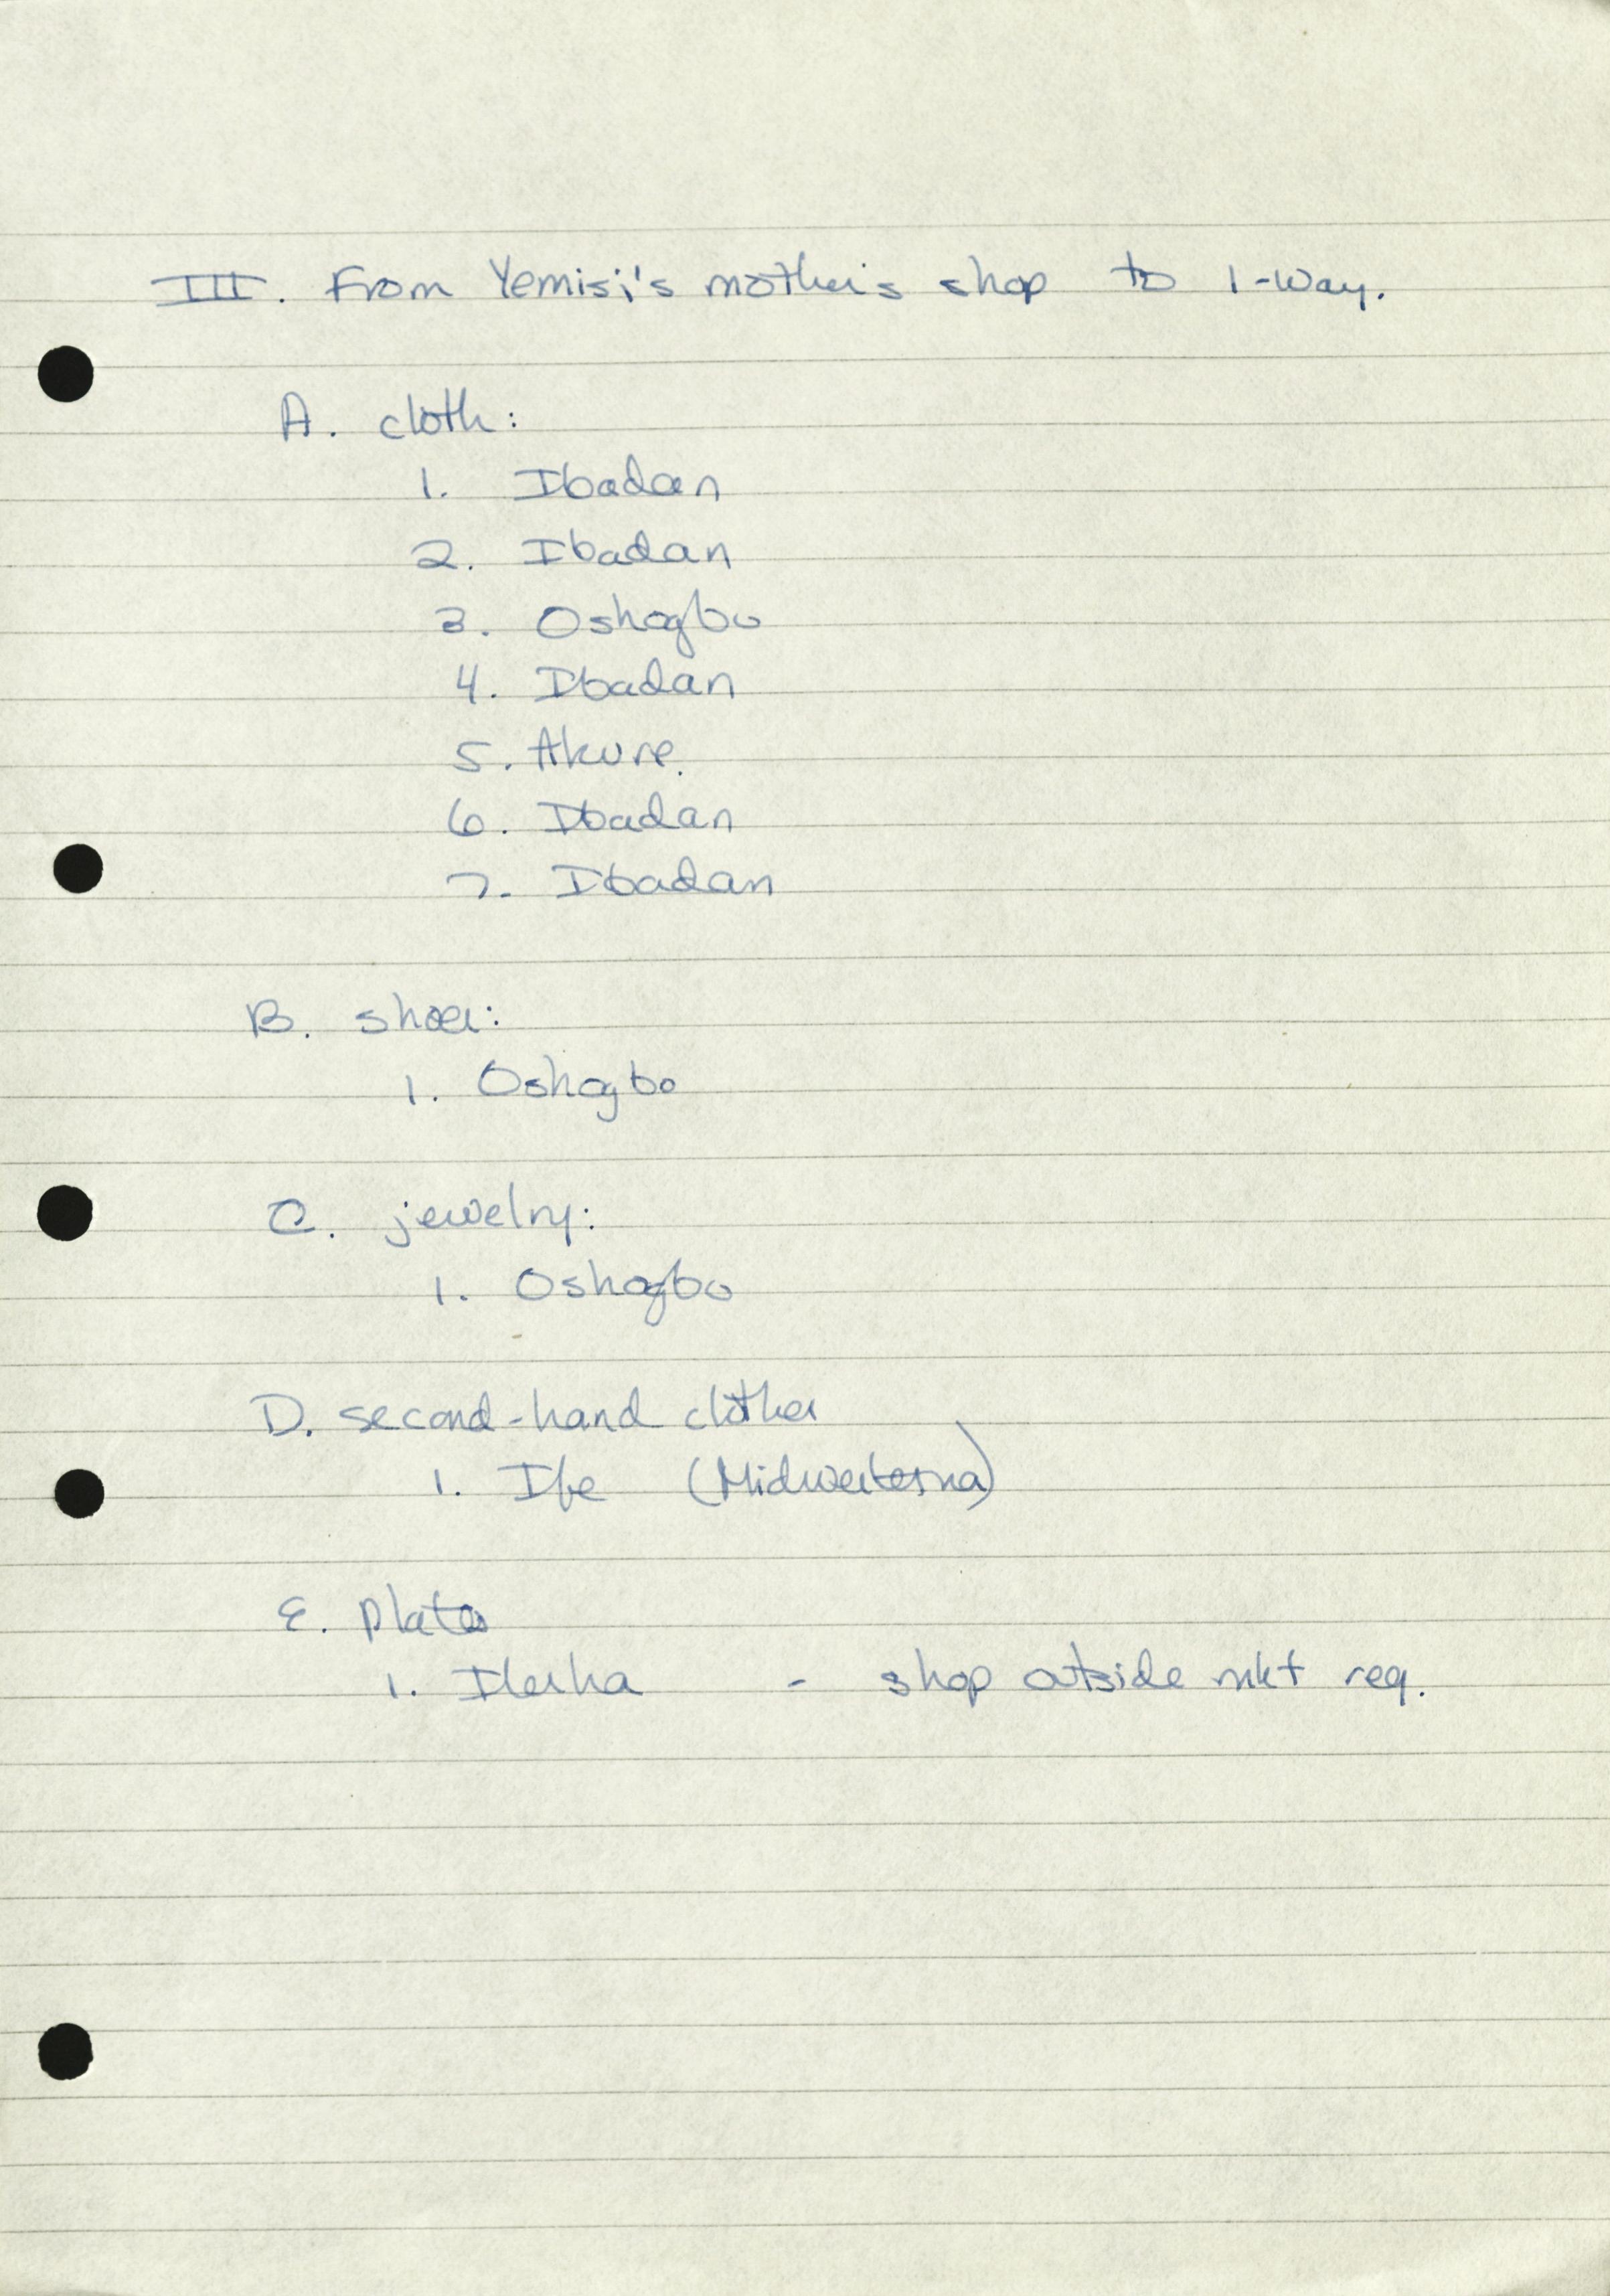 III. From Yemisi's mother's shop to 1-way.
A. cloth:
1. Ibadan
2. Ibadan
3. Oshogbo
4. Ibadan
5. Akure.
6. Ibadan
7. Ibadan
B. shoes:
1. Oshogbo
C. jewelry:
1. Oshogbo
D. second-hand clothes
1. Ife (Midwesterna)
E. plates
1. Ilesha - shop outside mkt req.